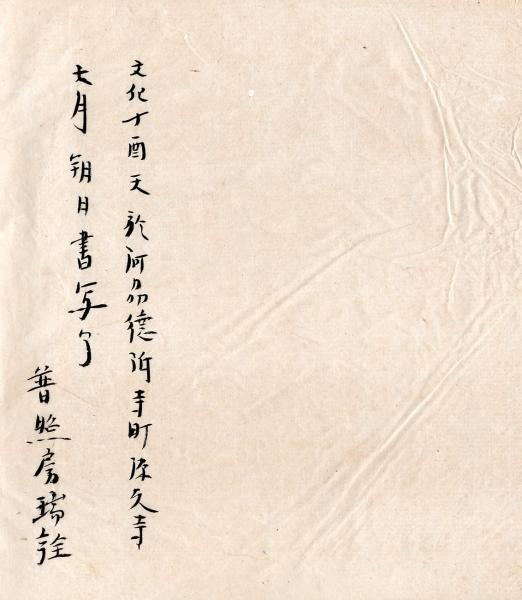 文化十酉天於阿州徳府寺町源久寺
七月朔日書写了
普照房瑞詮